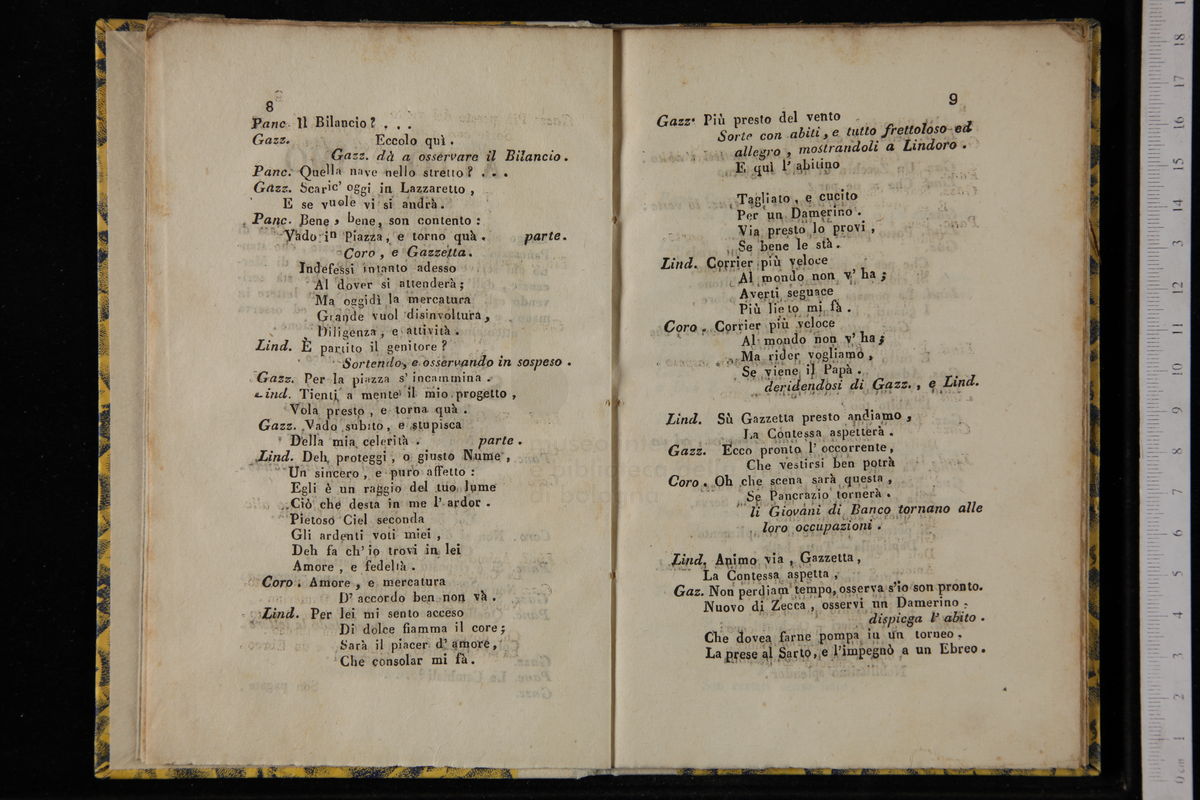 8
Panc. Il Bilancio? . . .
Gazz. Eccolo quì .
Gazz. dà a osservare il Bilancio .
Panc. Quella nave nello stretto? . . .
Gazz. Scaric' oggi in Lazzaretto ,
E se vuole vi si andrà .
Panc. Bene , bene, son contento :
Vado in Piazza, e torno quà . parte .
Coro , e Gazzetta .
Indefessi intanto adesso
Al dover si attenderà ;
Ma oggidì la mercatura
Grande vuol disinvoltura ,
Diligenza , e attività .
Lind. È partito il genitore ?
Sortendo, e osservando in sospeso .
Gazz. Per la piazza s' incammina .
Lind. Tienti a mente il mio progetto ,
Vola presto , e torna quà .
Gazz. Vado subito, e stupisca
Della mia celerità . parte .
Lind. Deh proteggi , o giusto Nume ,
Un sincero , e puro affetto :
Egli è un raggio del tuo lume
Ciò che desta in me l' ardor .
Pietoso Ciel seconda
Gli ardenti voti miei ,
Deh fa ch' io trovi in lei
Amore , e fedeltà .
Coro . Amore , e mercatura
D' accordo ben non và .
Lind. Per lei mi sento acceso
Di dolce fiamma il core ;
Sarà il piacer d' amore ,
Che consolar mi fà .
9
Gazz. Più presto del vento
Sorte con abiti , e tutto frettoloso ed
allegro , mostrandoli a Lindoro .
E quì l' abitino
Tagliato , e cucito
Per un Damerino .
Via presto lo provi ,
Se bene le stà .
Lind. Corrier più veloce
Al mondo non v' ha ;
Averti seguace
Più lieto mi fà .
Coro . Corrier più veloce
Al mondo non v' ha ;
Ma rider vogliamo ,
Se viene il Papà .
deridendosi di Gazz. , e Lind.
Lind. Sù Gazzetta presto andiamo ,
La Contessa aspetterà .
Gazz. Ecco pronto l' occorrente ,
Che vestirsi ben potrà
Coro . Oh che scena sarà questa ,
Se Pancrazio tornerà .
li Giovani di Banco tornano alle
loro occupazioni .
Lind. Animo via , Gazzetta ,
La Contessa aspetta ,
Gaz. Non perdiam tempo, osserva s'io son pronto.
Nuovo di Zecca , osservi un Damerino .
dispiega l' abito .
Che dovea farne pompa in un torneo .
La prese al Sarto, e l'impegnò a un Ebreo .